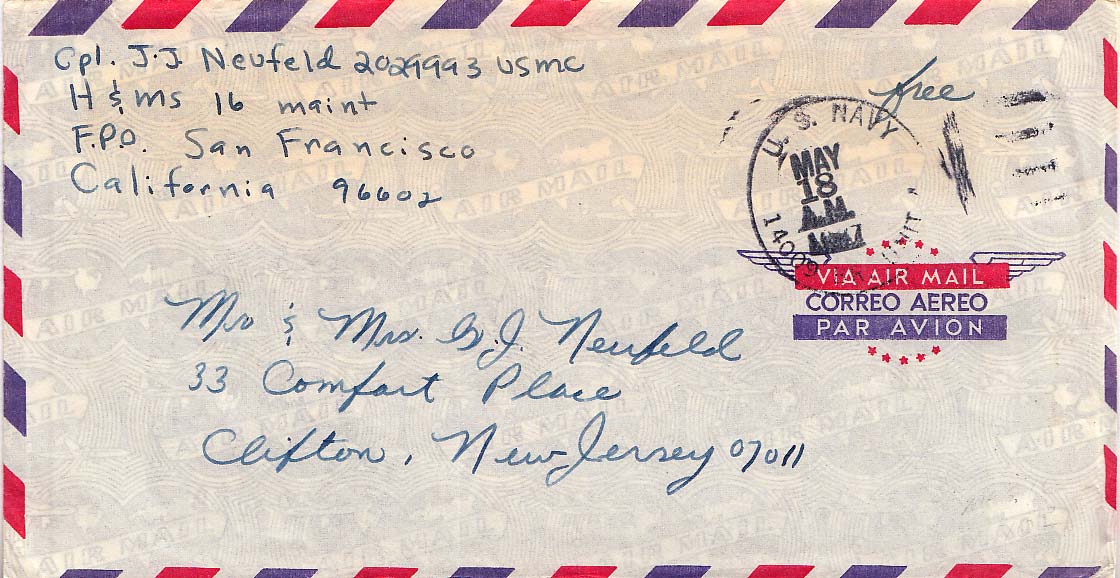 Cpl. J.J. Neufeld 2029993 USMC
H & MS 16 maint
F.P.O. San Francisco
California 96602
free
U.S. NAVY
MAY
18
A.M.
14009
UNIT
VIA AIR MAIL
CORREO AEREO
PAR AVION
Mr & Mrs. G.J. Neufeld
33 Comfort Place
Clifton, New Jersey 07011
AIR MAIL